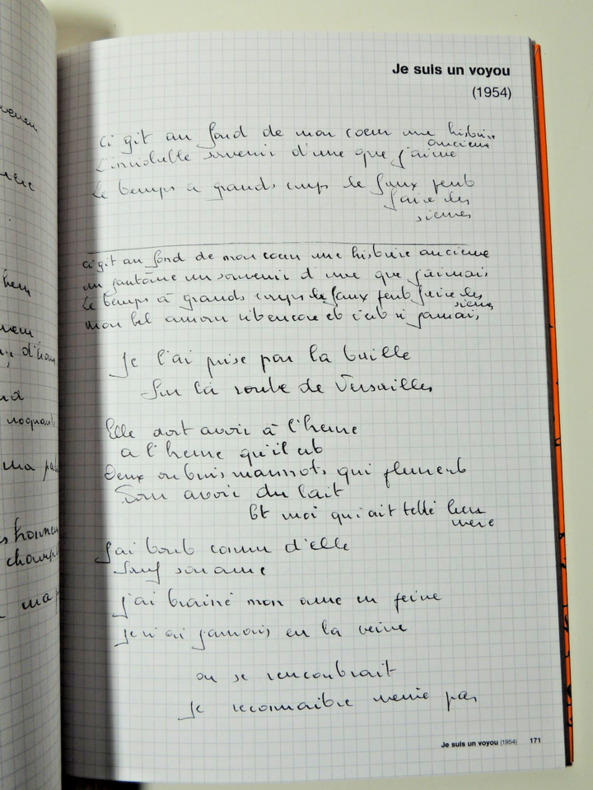 Je suis un voyou
(1954)
ci gît au fond de mon cœur une histoire
ancienne
souvenir d'une que j'aime
le temps à grands coups de faux peut
faire des
siennes
ci gît au fond de mon cœur une histoire ancienne
un fantôme un souvenir d'une que j'aimais
le temps à grands coups de faux peut faire des
siennes
mon bel amour et c'est à jamais
Je l'ai prise par la taille
Sur la route de Versailles
Elle doit avoir à l'heure
à l'heure qu'il est
Deux ou trois marmots qui pleurent
Pour avoir du lait
Et moi qui ait tété leur
mère
J'ai tout connu d'elle
Sauf son âme
j'ai traîné mon âme en peine
je n'ai jamais eu la veine
on se rencontrait
Je reconnaitre même pas
ma pa
d'eau
champ
ma p
Je suis un voyou (1954) 171